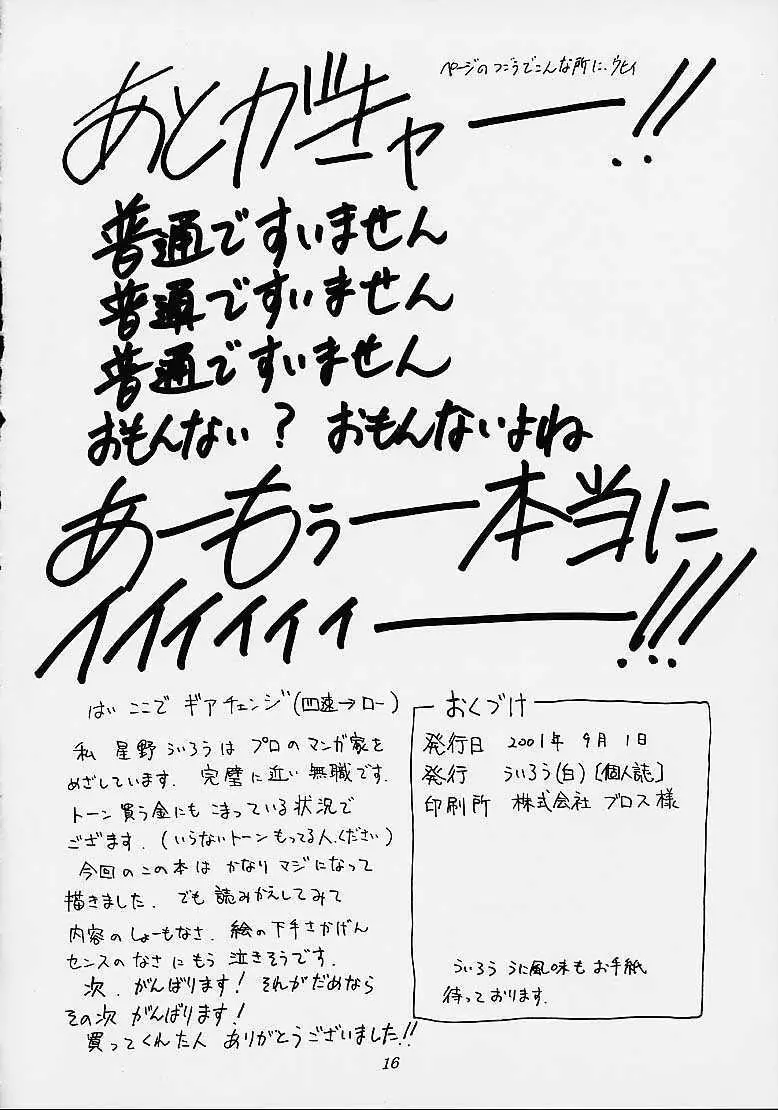 ページのつごうでこんな所に、ウヒィ
あとがキャー!!
普通ですいません
普通ですいません
普通ですいません
おもんない? おもんないよね
あーもぅー本当に
イイィィィィー!!!
はい ここで ギアチェンジ(四速→ロー)
私 星野ういろうは プロのマンガ家を
めざしています. 完璧に近い無職です.
トーン買う金にも こまっている状況で
ござます. (いらないトーンもってる人、ください)
今回のこの本は かなり マジになって
描きました. でも 読みかえしてみて
内容のしょーもなさ. 絵の下手さかげん
センスのなさ にもう 泣きそうです.
次. がんばります! それがだめなら
その次 がんばります!
買ってくれた人 ありがとうございました!!
おくづけ
発行日 2001年 9月 1日
発行 ういろう(白)[個人誌]
印刷所 株式会社 ブロス様
ういろう うに風味も お手紙
待っております.
16